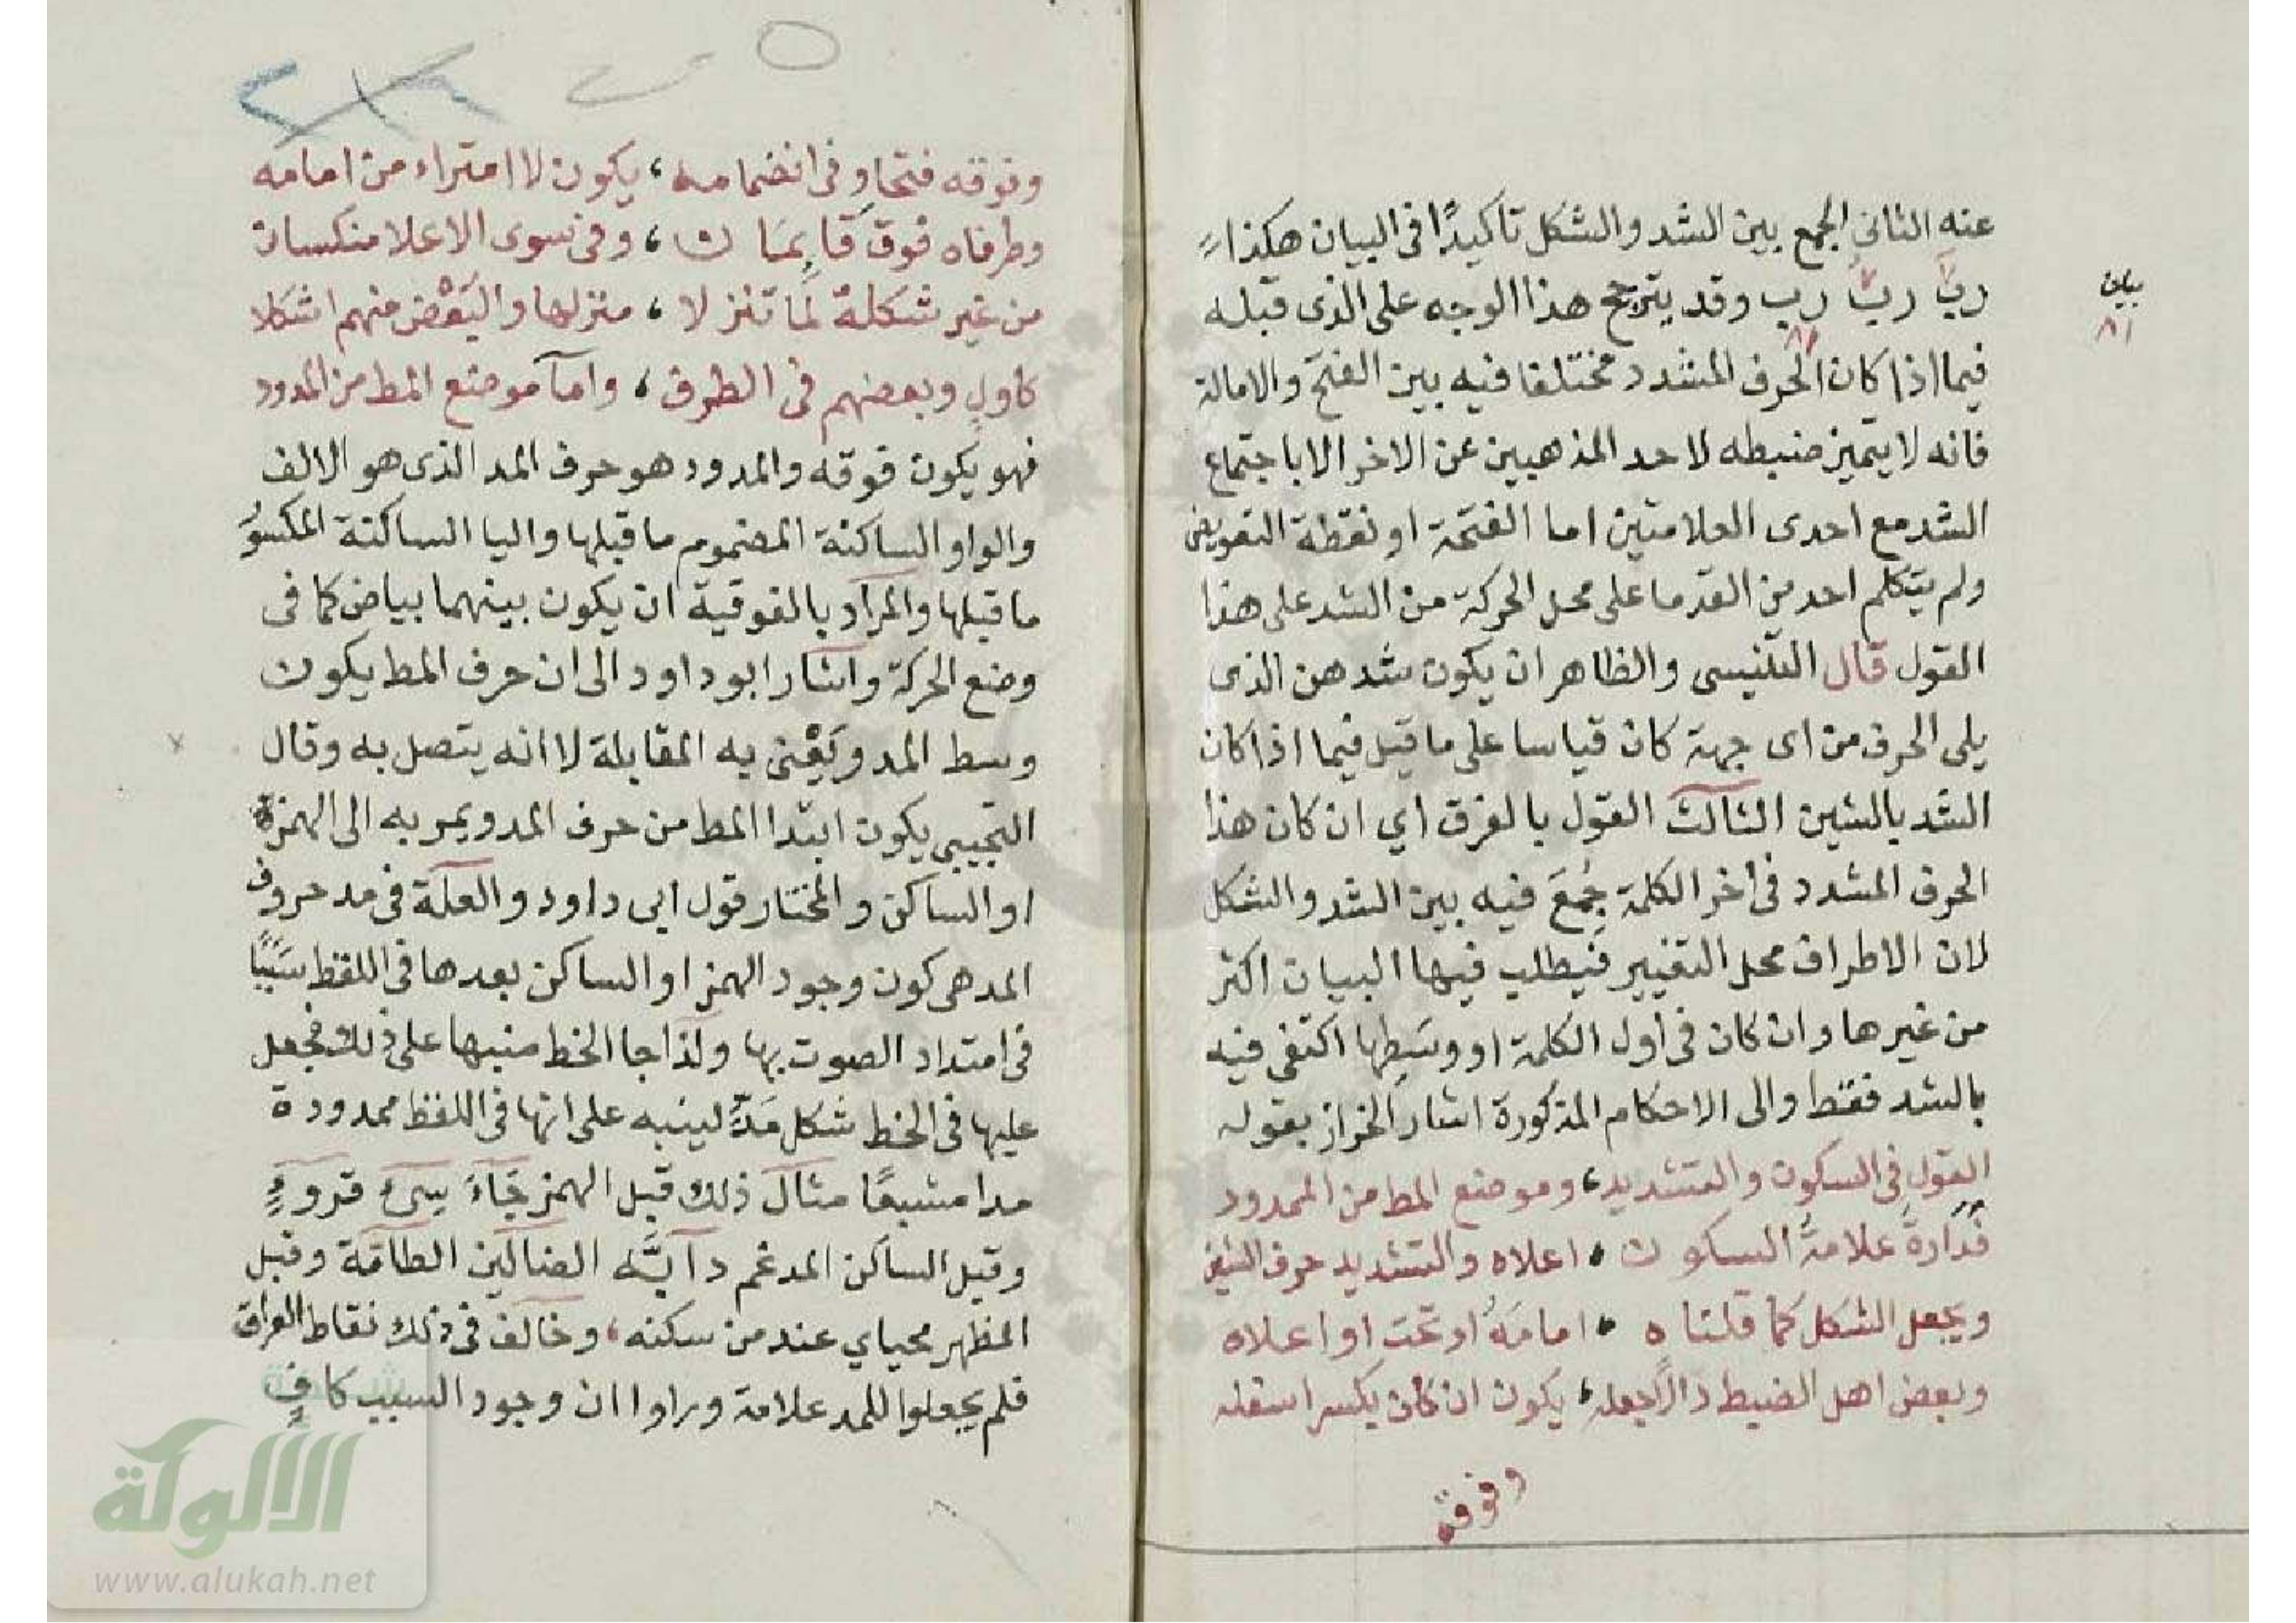 عنه الثاني الجمع بين الشد والشكل تاكيدًا في البيان هكذا
ربّ ربّ رب وقد يترجح هذا الوجه على الذى قبله
بيان
فيما اذا كان الحرف المشدد مختلفا فيه بين الفتح والامالة
فانه لا يتميز ضبطه لاحد المذهبين عن الاخر الا باجتماع
الشد مع احدى العلامتين اما الفتحة او نقطة التعويض
ولم يتكلم احد من القدما على محل الحركة من الشد على هذا
القول قال التنسى والظاهر ان يكون شد هن الذى
يلى الحرف من اى جهة كان قياسا على ما قيل فيما اذا كان
الشد بالشين الثالث القول بالفرق اي ان كان هذا
الحرف المشدد فى اخر الكلمة جُمِعَ فيه بين الشد والشكل
لان الاطراف محل التغيير فيطلب فيها البيان اكثر
من غيرها وان كان فى اول الكلمة او وسَطِها اكتفى فيه
بالشد فقط والى الاحكام المذكورة اشار الخراز بقوله
القول فى السكون والتشديد، وموضع المط من الممدود
فدارةٌ علامةُ السكون اعلاه والتشديد حرف الشين
ويجعل الشكل كما قلناه امامَهُ او تحت او اعلاه
وبعض اهل الضبط دالًا جعله، يكون ان كان يكسر اسفله
وفوقه
وفوقه فتحا وفى انضمامه، يكون لا امتراء من امامه
وطرفاه فوق قايمان، وفى سوى الاعلا منكسان
من غير شكلة لما تنزلا، منزلها والبَعْض منهم اشكلا
كاول وبعضهم فى الطرف، واما موضع المط من المدود
فهو يكون فوقه والمدود هو حرف المد الذى هو الالف
والواو الساكنة المضموم ما قبلها واليا الساكنة المكسوُ
ما قبلها والمراد بالفوقية ان يكون بينهما بياض كما فى
وضع الحركة واشار ابو داود الى ان حرف المط يكون
وسط المد ويَعْنى به المقابلة لا انه يتصل به وقال
التجيبى يكون ابتدا المط من حرف المد ويمر به الى الهمزة
او الساكن والمختار قول ابى داود والعلة فى مد حروف
المد هى كون وجود الهمز او الساكن بعدها فى اللفظ سَبَبًا
فى امتداد الصوت بها ولذا جا الخط منبها على ذلك فجعل
عليها فى الخط شكل مَدّ لينبه على انها فى اللفظ ممدودة
مدا مشبعًا مثال ذلك قبل الهمز جَآءَ سىٓء قروٓءٍ
وقبل الساكن المدغم دآبَّه الضالين الطامة وقبل
المظهر محياي عند من سكنه، وخالف فى ذلك نقاط العراق
فلم يجعلوا للمد علامة وراوا ان وجود السبب كافٍ
الألوكة
www.alukah.net